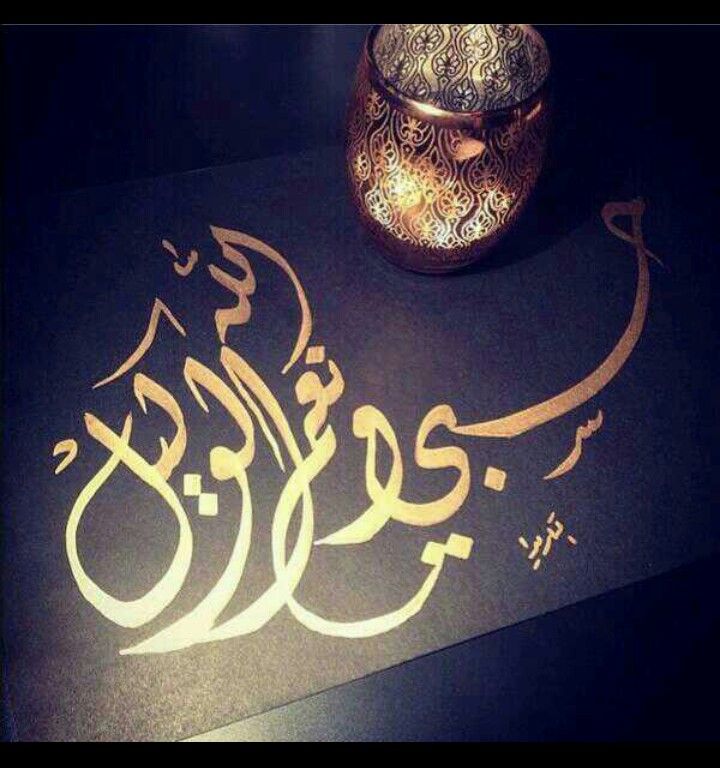 حسبي الله و نعم الوكيل